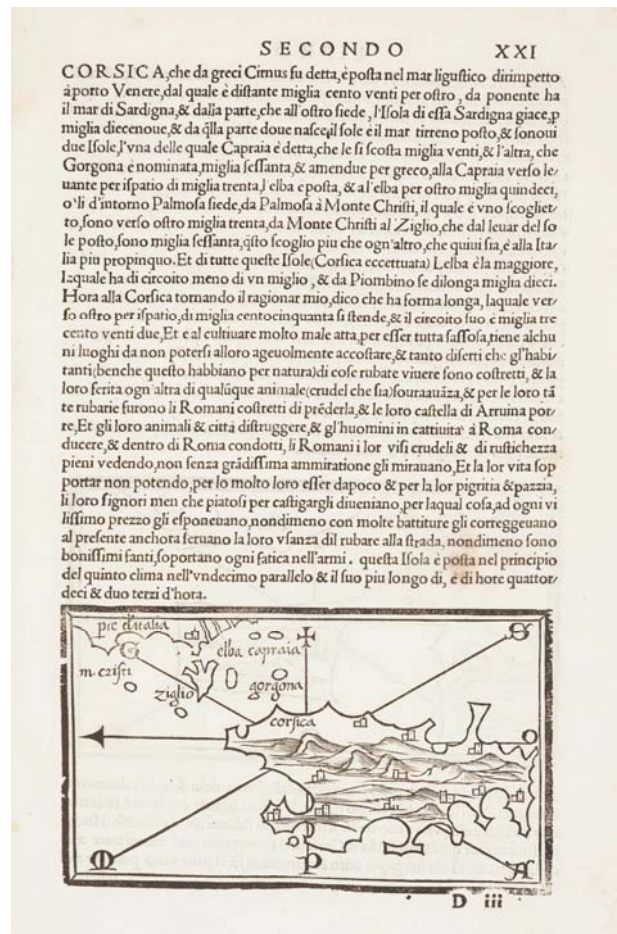 SECONDO XXI
CORSICA, che da greci Cirnus fu detta, è posta nel mar ligustico dirimpetto
à porto Venere, dal quale è distante miglia cento venti per ostro, da ponente ha
il mar di Sardigna, & dalla parte, che all'ostro siede, l'Isola di essa Sardigna giace, p
miglia diecenoue, & da q̃lla parte doue nasce, il sole è il mar tirreno posto, & sonoui
due Isole, l'vna delle quale Capraia è detta, che le si scosta miglia venti, & l'altra, che
Gorgona è nominata, miglia sessanta, & amendue per greco, alla Capraia verso le/
uante per ispatio di miglia trenta, l elba e posta, & al'elba per ostro miglia quindeci,
o'li d'intorno Palmosa siede, da Palmosa à Monte Christi, il quale è vno scogliet/
to, sono verso ostro miglia trenta, da Monte Christi al Ziglio, che dal leuar del so
le posto, sono miglia sessanta, q̃sto scoglio piu che ogn'altro, che quiui sia, è alla Ita/
lia piu propinquo. Et di tutte queste Isole (Corsica eccettuata) Lelba è la maggiore,
laquale ha di circoito meno di vn miglio, & da Piombino se dilonga miglia dieci.
Hora alla Corsica tornando il ragionar mio, dico che ha forma longa, laquale ver/
so ostro per ispatio, di miglia centocinquanta si stende, & il circoito suo è miglia tre
cento venti due, Et e al cultiuare molto male atta, per esser tutta sassosa, tiene alchu
ni luoghi da non potersi alloro ageuolmente accostare, & tanto diserti che gl'habi/
tanti (benche questo habbiano per natura) di cose rubate viuere sono costretti, & la
loro ferita ogn'altra di qualũque animale (crudel che sia) souraauãza, & per le loro tã
te rubarie furono li Romani costretti di prẽderla, & le loro castella di Arruina por/
re, Et gli loro animali & città distruggere, & gl'huomini in cattiuita à Roma con/
ducere, & dentro di Roma condotti, li Romani i lor visi crudeli & di rustichezza
pieni vedendo, non senza grãdissima ammiratione gli mirauano, Et la lor vita sop
portar non potendo, per lo molto loro esser dapoco & per la lor pigritia & pazzia,
li loro signori men che piatosi per castigargli diueniano, per laqual cosa, ad ogni vi
lissimo prezzo gli esponeuano, nondimeno con molte battiture gli correggeuano
al presente anchora seruano la loro vsanza dil rubare alla strada, nondimeno sono
bonissimi fanti, soportano ogni fatica nell'armi. questa Isola è posta nel principio
del quinto clima nell'vndecimo parallelo & il suo piu longo di, è di hore quattor/
deci & duo terzi d'hora.
pte d'italia
G
S
elba capraia
m. cristi
ziglio
gorgona
corsica
O
M
P
A
D iii